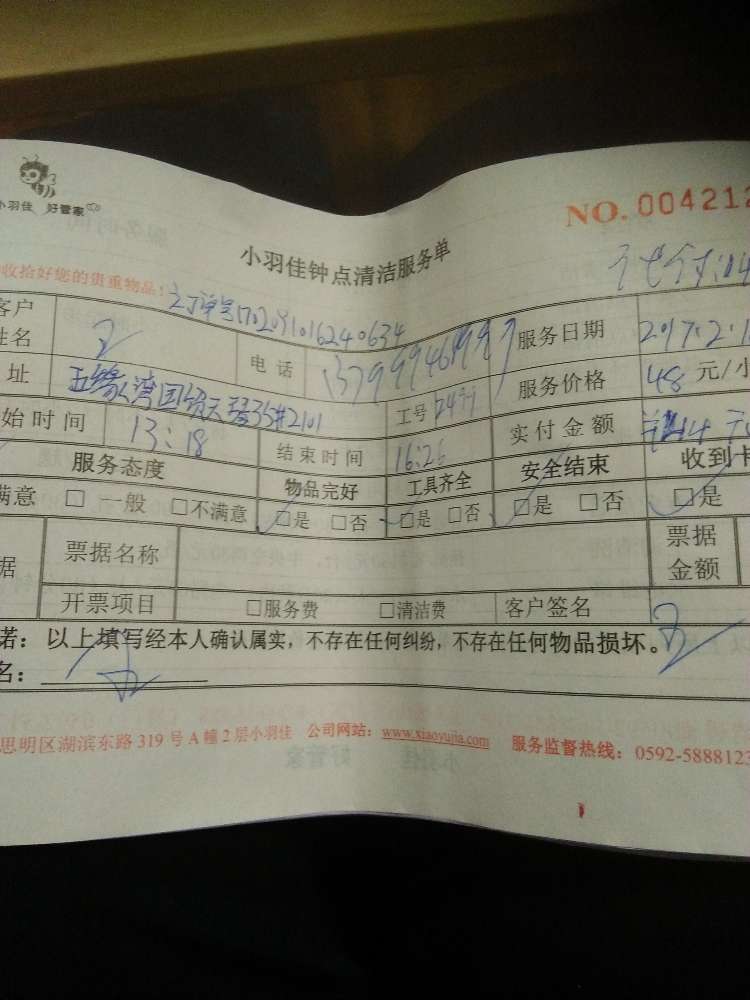 小羽佳 好管家
NO. 004212
小羽佳钟点清洁服务单
收拾好您的贵重物品！
客户
姓名
电话
服务日期 2017.2.1
址 五缘湾国贸天琴35#2101
工号
服务价格 48 元/小
始时间 13:18
结束时间 16:26
实付金额
服务态度 物品完好 工具齐全 安全结束 收到卡
满意 □一般 □不满意 □是 □否 □是 □否 □是 □否 □是
据 票据名称 票据金额
开票项目 □服务费 □清洁费 客户签名
诺：以上填写经本人确认属实，不存在任何纠纷，不存在任何物品损坏。
名：
思明区湖滨东路 319 号 A 幢 2 层小羽佳 公司网站：www.xiaoyujia.com 服务监督热线：0592-5888123